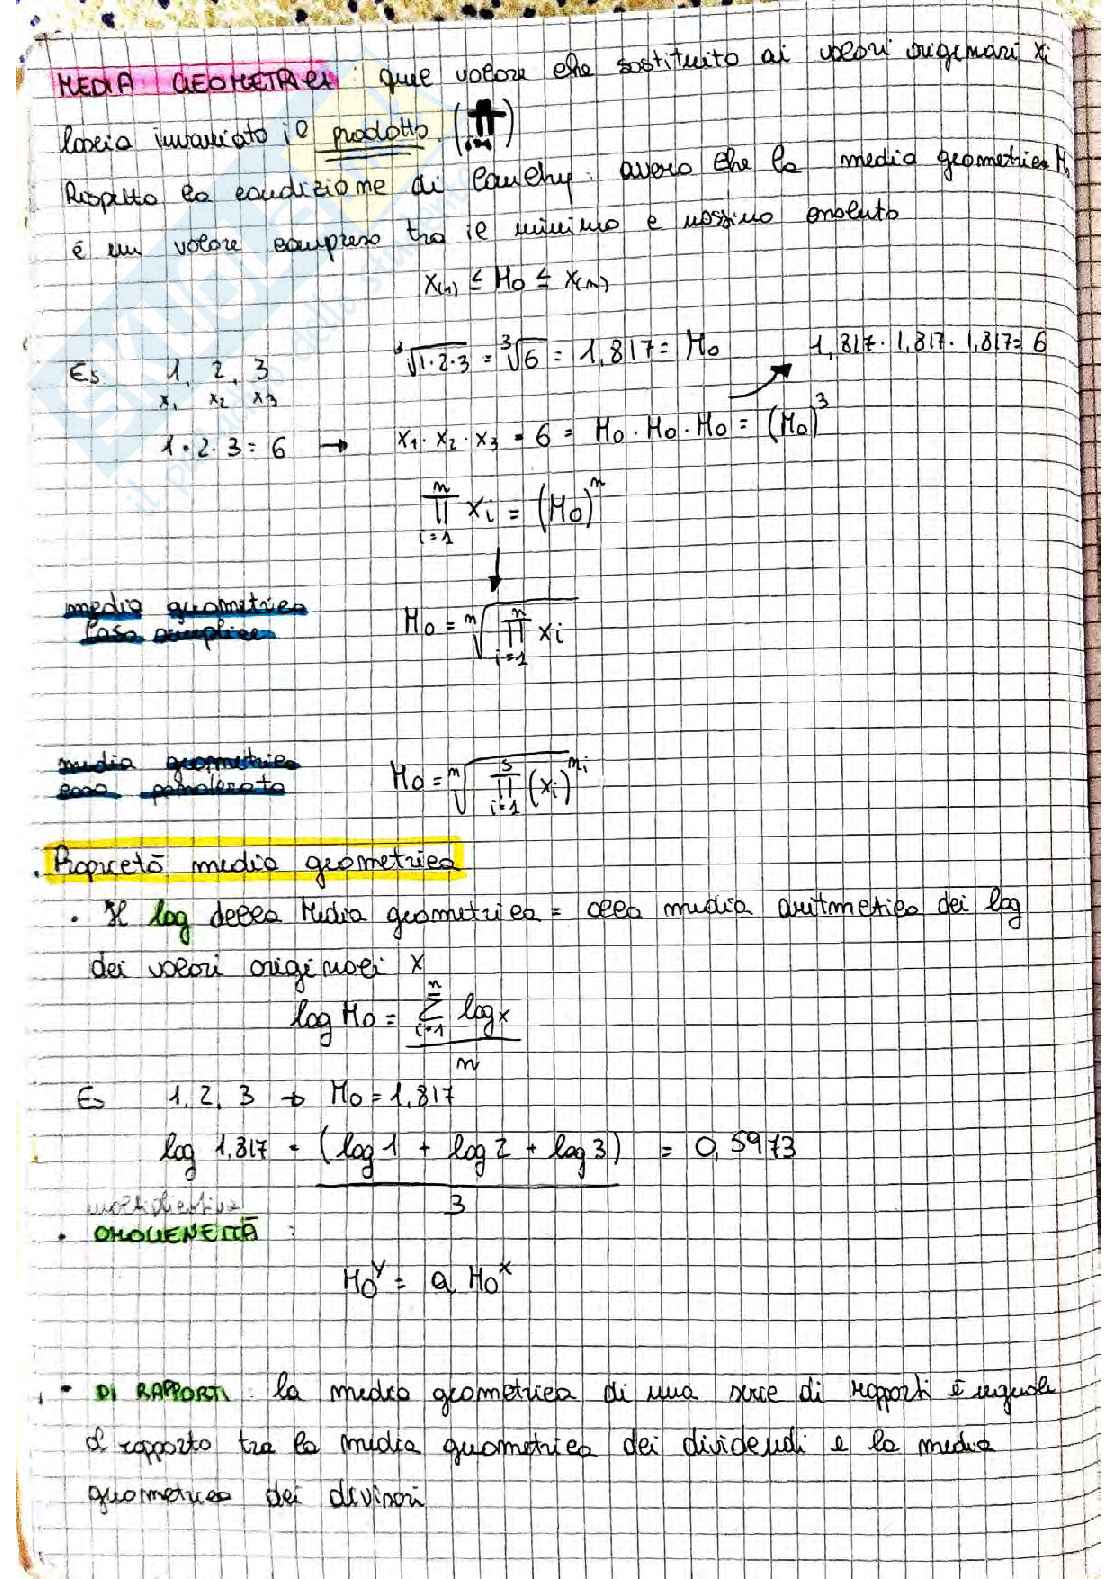 MEDIA GEOMETRICA: quel valore che sostituito ai valori originari xi
lascia invariato il prodotto. (∏ i=1)
Rispetta la condizione di Cauchy: avero che la media geometrica M0
è un valore compreso tra il minimo e massimo assoluto
x(1) ≤ M0 ≤ x(n)
Es. 1, 2, 3 ³√1·2·3 = ³√6 = 1,817 = M0 1,817 · 1,817 · 1,817 = 6
x1 x2 x3
1 · 2 · 3 = 6 → x1 · x2 · x3 = 6 = M0 · M0 · M0 = (M0)³
∏ⁿ i=1 xi = (M0)ⁿ
↓
media geometrica
caso semplice M0 = ⁿ√∏ⁿ i=1 xi
media geometrica
caso ponderato M0 = ⁿ√∏ˢ i=1 (xi)^ni
Proprietà media geometrica
• Il log della Media geometrica = alla media aritmetica dei log
dei valori originali x
log M0 = Σⁿ i=1 log x / n
Es 1, 2, 3 → M0 = 1,817
log 1,817 = (log 1 + log 2 + log 3) / 3 = 0,5973
moltiplicativa
• OMOGENEITÀ :
M0^y = a M0^x
• DI RAPPORTI: la media geometrica di una serie di rapporti è uguale
al rapporto tra la media geometrica dei dividendi e la media
geometrica dei divisori